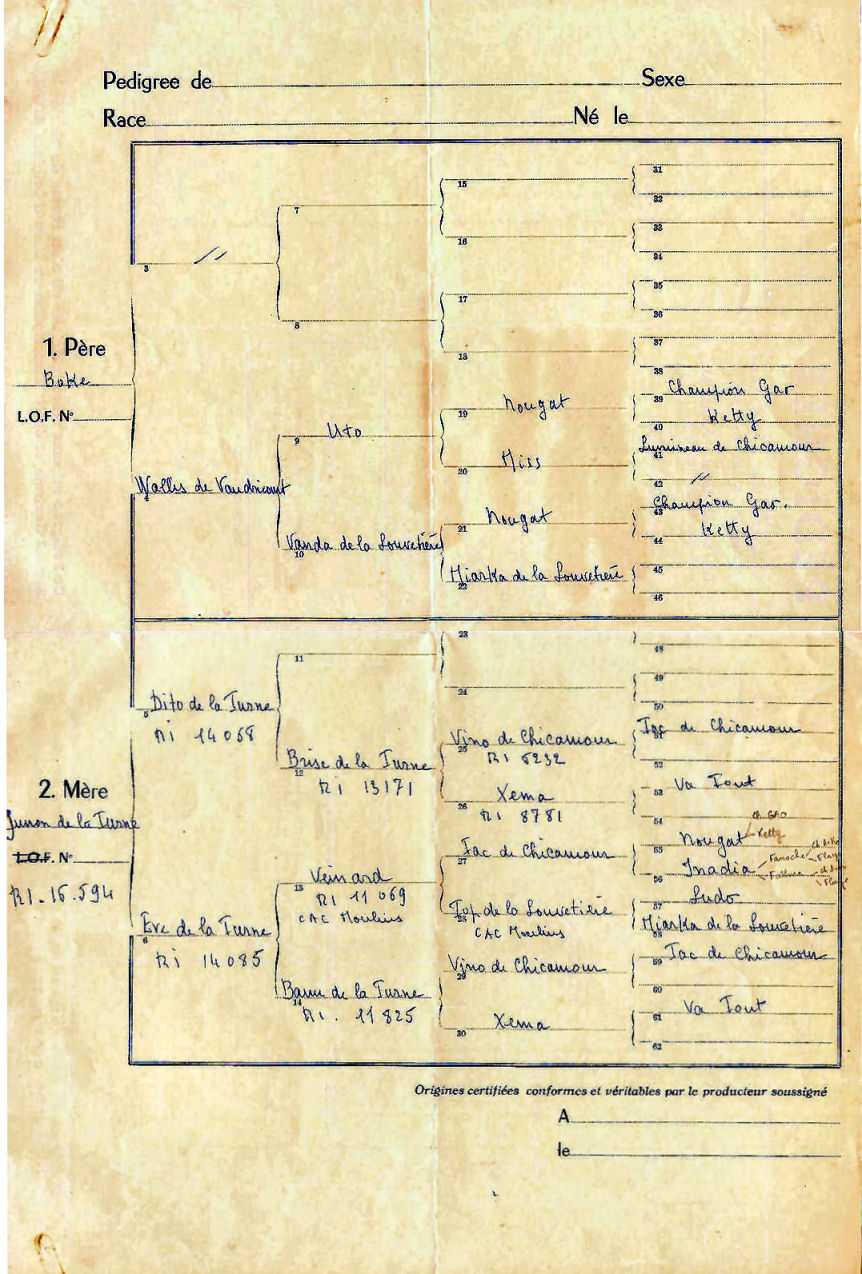 Pedigree de Sexe
Race Né le
1. Père
Boke
L.O.F. N°
3 //
7
8
15
16
17
18
31
32
33
34
35
36
37
38
4 Wallis de Vaudricourt
9 Uto
10 Vanda de la Louvetière
19 Nougat
20 Miss
21 Nougat
22 Miarka de la Louvetière
39 Champion Gar
40 Ketty
41 Lumineau de Chicamour
42 //
43 Champion Gar.
44 Ketty
45
46
2. Mère
Junon de la Turne
L.O.F. N°
RI. 15.594
5 Dito de la Turne
RI 14068
11
12 Brise de la Turne
RI 13171
23
24
25 Vino de Chicamour
RI 6232
26 Xema
RI 8781
48
49
50
51 Tac de Chicamour
52
53 Va Tout
54
6 Eve de la Turne
RI 14085
13 Veinard
RI 11069
CAC Moulins
14 de la Turne
RI. 11825
27 Tac de Chicamour
28 Top de la Louvetière
CAC Moulins
29 Vino de Chicamour
30 Xema
55 Nougat
Ketty
56 Inadia
Fanoche
57 Ludo
58 Miarka de la Louvetière
59 Tac de Chicamour
60
61 Va Tout
62
Origines certifiées conformes et véritables par le producteur soussigné
A
le